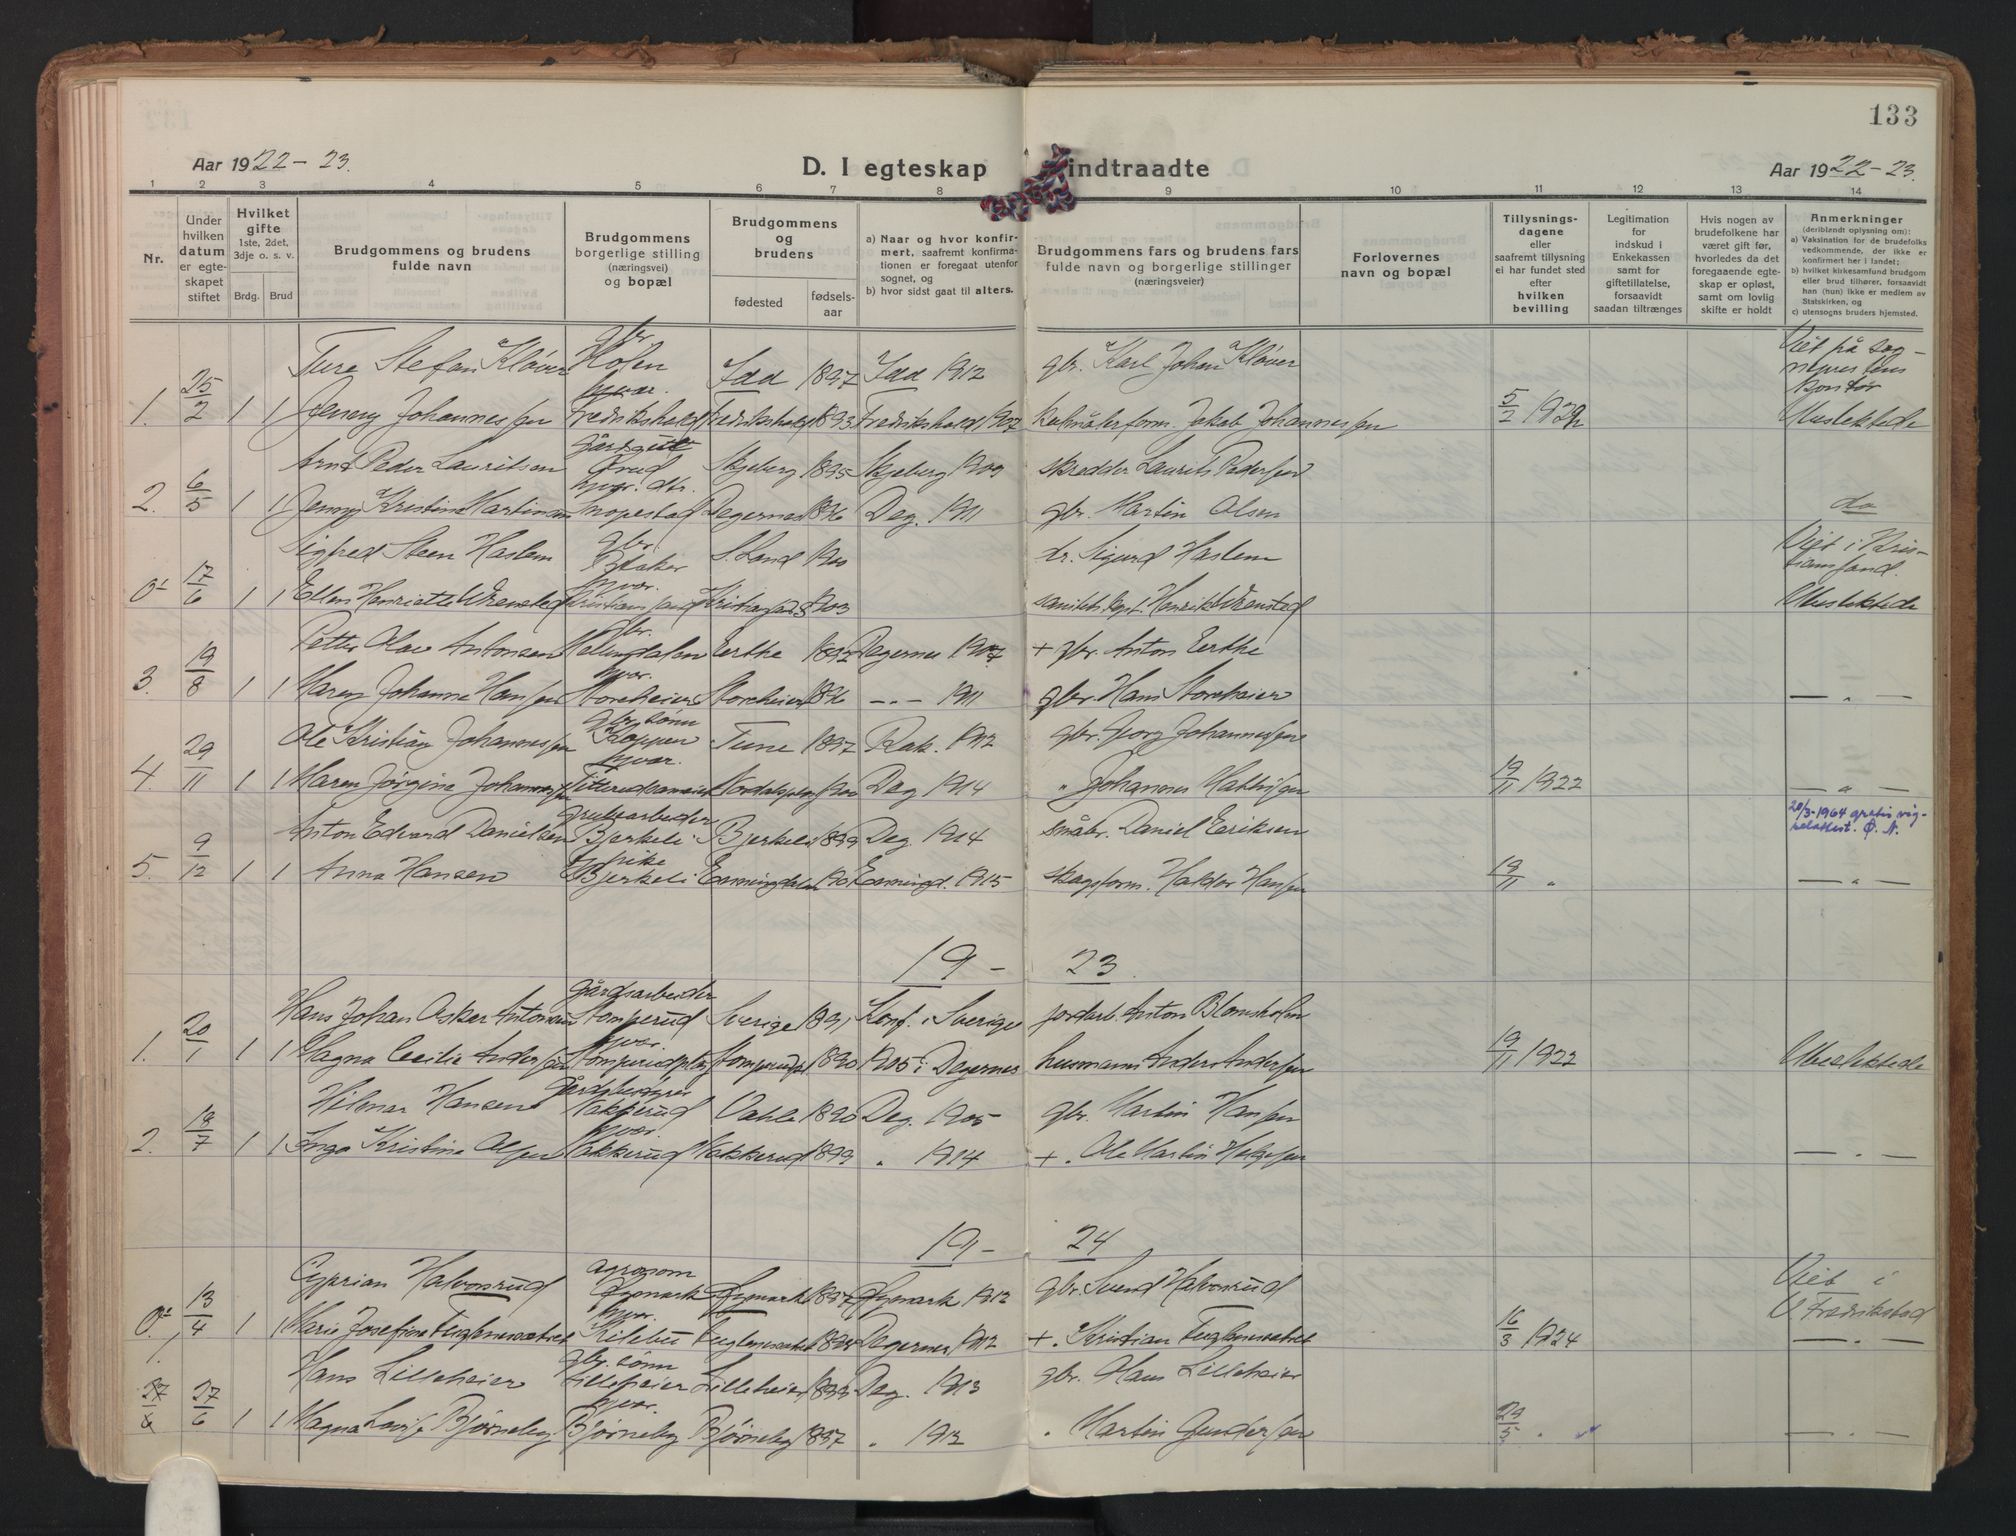 133
Aar 1922-23. D. I egteskap indtraadte Aar 1922-23.
1 2 3 4 5 6 7 8 9 10 11 12 13 14
Nr.
Under hvilken datum er egteskapet stiftet
Hvilket gifte 1ste, 2det, 3dje o. s. v.
Brdg. Brud
Brudgommens og brudens fulde navn
Brudgommens borgerlige stilling (næringsvei) og bopæl
Brudgommens og brudens
fødested fødselsaar
a) Naar og hvor konfirmert, saafremt konfirmationen er foregaat utenfor sognet, og
b) hvor sidst gaat til alters.
Brudgommens fars og brudens fars fulde navn og borgerlige stillinger (næringsveier)
Forlovernes navn og bopæl
Tillysningsdagene eller saafremt tillysning ei har fundet sted efter hvilken bevilling
Legitimation for indskud i Enkekassen samt for giftetillatelse, forsaavidt saadan tiltrænges
Hvis nogen av brudefolkene har været gift før, hvorledes da det foregaaende egteskap er opløst, samt om lovlig skifte er holdt
Anmerkninger (deriblandt oplysning om):
a) Vaksination for de brudefolks vedkommende, der ikke er konfirmert her i landet;
b) hvilket kirkesamfund brudgom eller brud tilhører, forsaavidt han (hun) ikke er medlem av Statskirken, og
c) utensogns bruders hjemsted.
Ture Stefan Kløver gbr. Idd 1897 Idd 1912 gbr. Karl Johan Kløver Viet på sognepræstens kontor
1. 25/2 1 1 Jenny Johannessen hjvær. Fredrikshald Fredrikshald 1893 Fredrikshald 1907 Jakob Johannessen 5/2 1922 Ubeslektede
Arnt Peder Lauritsen Skjeberg 1895 Skjeberg 1909 skredder Laurits Pedersen
2. 6/5 1 1 Jenny Kristine Martinsen Degernes 1896 Deg. 1911 gbr. Martin Olsen do
Sigfred Steen Haslem gbr. S. Land 1900 dr. Sigurd Haslem Viet i Kristiansand.
0¹ 17/6 1 1 Ellen Henriette Wrensted hjvær. Kristiansand Kristiansand 1903 Henrik Wrensted Ubeslektede
Petter Olav Antonsen gbr. Eerthe 1892 Degernes 1907 + gbr. Anton Eerthe
3. 19/8 1 1 Maren Johanne Hansen hjvær. Storeheier Storeheier 1896 -"- 1911 gbr. Hans Storeheier — " —
Ole Kristian Johannessen gbr. sønn Koppen Tune 1897 Rak. 1912 gbr. Georg Johannessen
4. 29/11 1 1 Maren Jørgine Johannessen hjvær. 1900 Deg 1914 " Johannes Mathisen 19/11 1922 — " —
Anton Edvard Danielsen grubearbeider Bjerkeli Bjerkeli 1899 Deg. 1914 småbr. Daniel Eriksen 20/3-1964 gratis
5. 9/12 1 1 Anna Hansen pike Bjerkeli Enningdalen Enningd. 1915 skogsform. Haldor Hansen 19/11 " — " —
19 - 23.
Hans Johan Asker Antonsen gårdsarbeider Stomperud Sverige 1891 Konf. i Sverige jordarb. Anton Blomsholm
1. 20/1 1 1 Magna Cecilie Andersen hjvær. Stomperudplads 1890 1905 i Degernes husmann Anders Andersen 19/11 1922 Ubeslektede
Hilmar Hansen gårdbestyrer Nakkerud Vahle 1890 Deg. 1905 gbr. Martin Hansen
2. 18/7 1 1 Inga Kristine Olsen hjvær. Nakkerud Nakkerud 1899 " 1914 +. Ole Martin Helgesen — " —
19 - 24
Cyprian Halvonsrud agronom Rymark Rymark 1897 Rymark 1912 gbr. Svend Halvonsrud Viet i Fredrikstad
0¹ 13/4 1 1 Marie Josefine Fuglemosetret hjvær. Kilebu Fuglemosetret Degernes 1912 +. Kristian Fuglemosetret 16/3 1924 — " —
1.
Hans Lilleheier gbr. sønn Lilleheier Lilleheier 1899 Deg. 1913 gbr. Hans Lilleheier
27/6 27/6 1 1 Magna Lovise Bjørneby hjvær. Bjørneby Bjørneby 1897 " 1912 " Martin Gundersen 29/5 " — " —